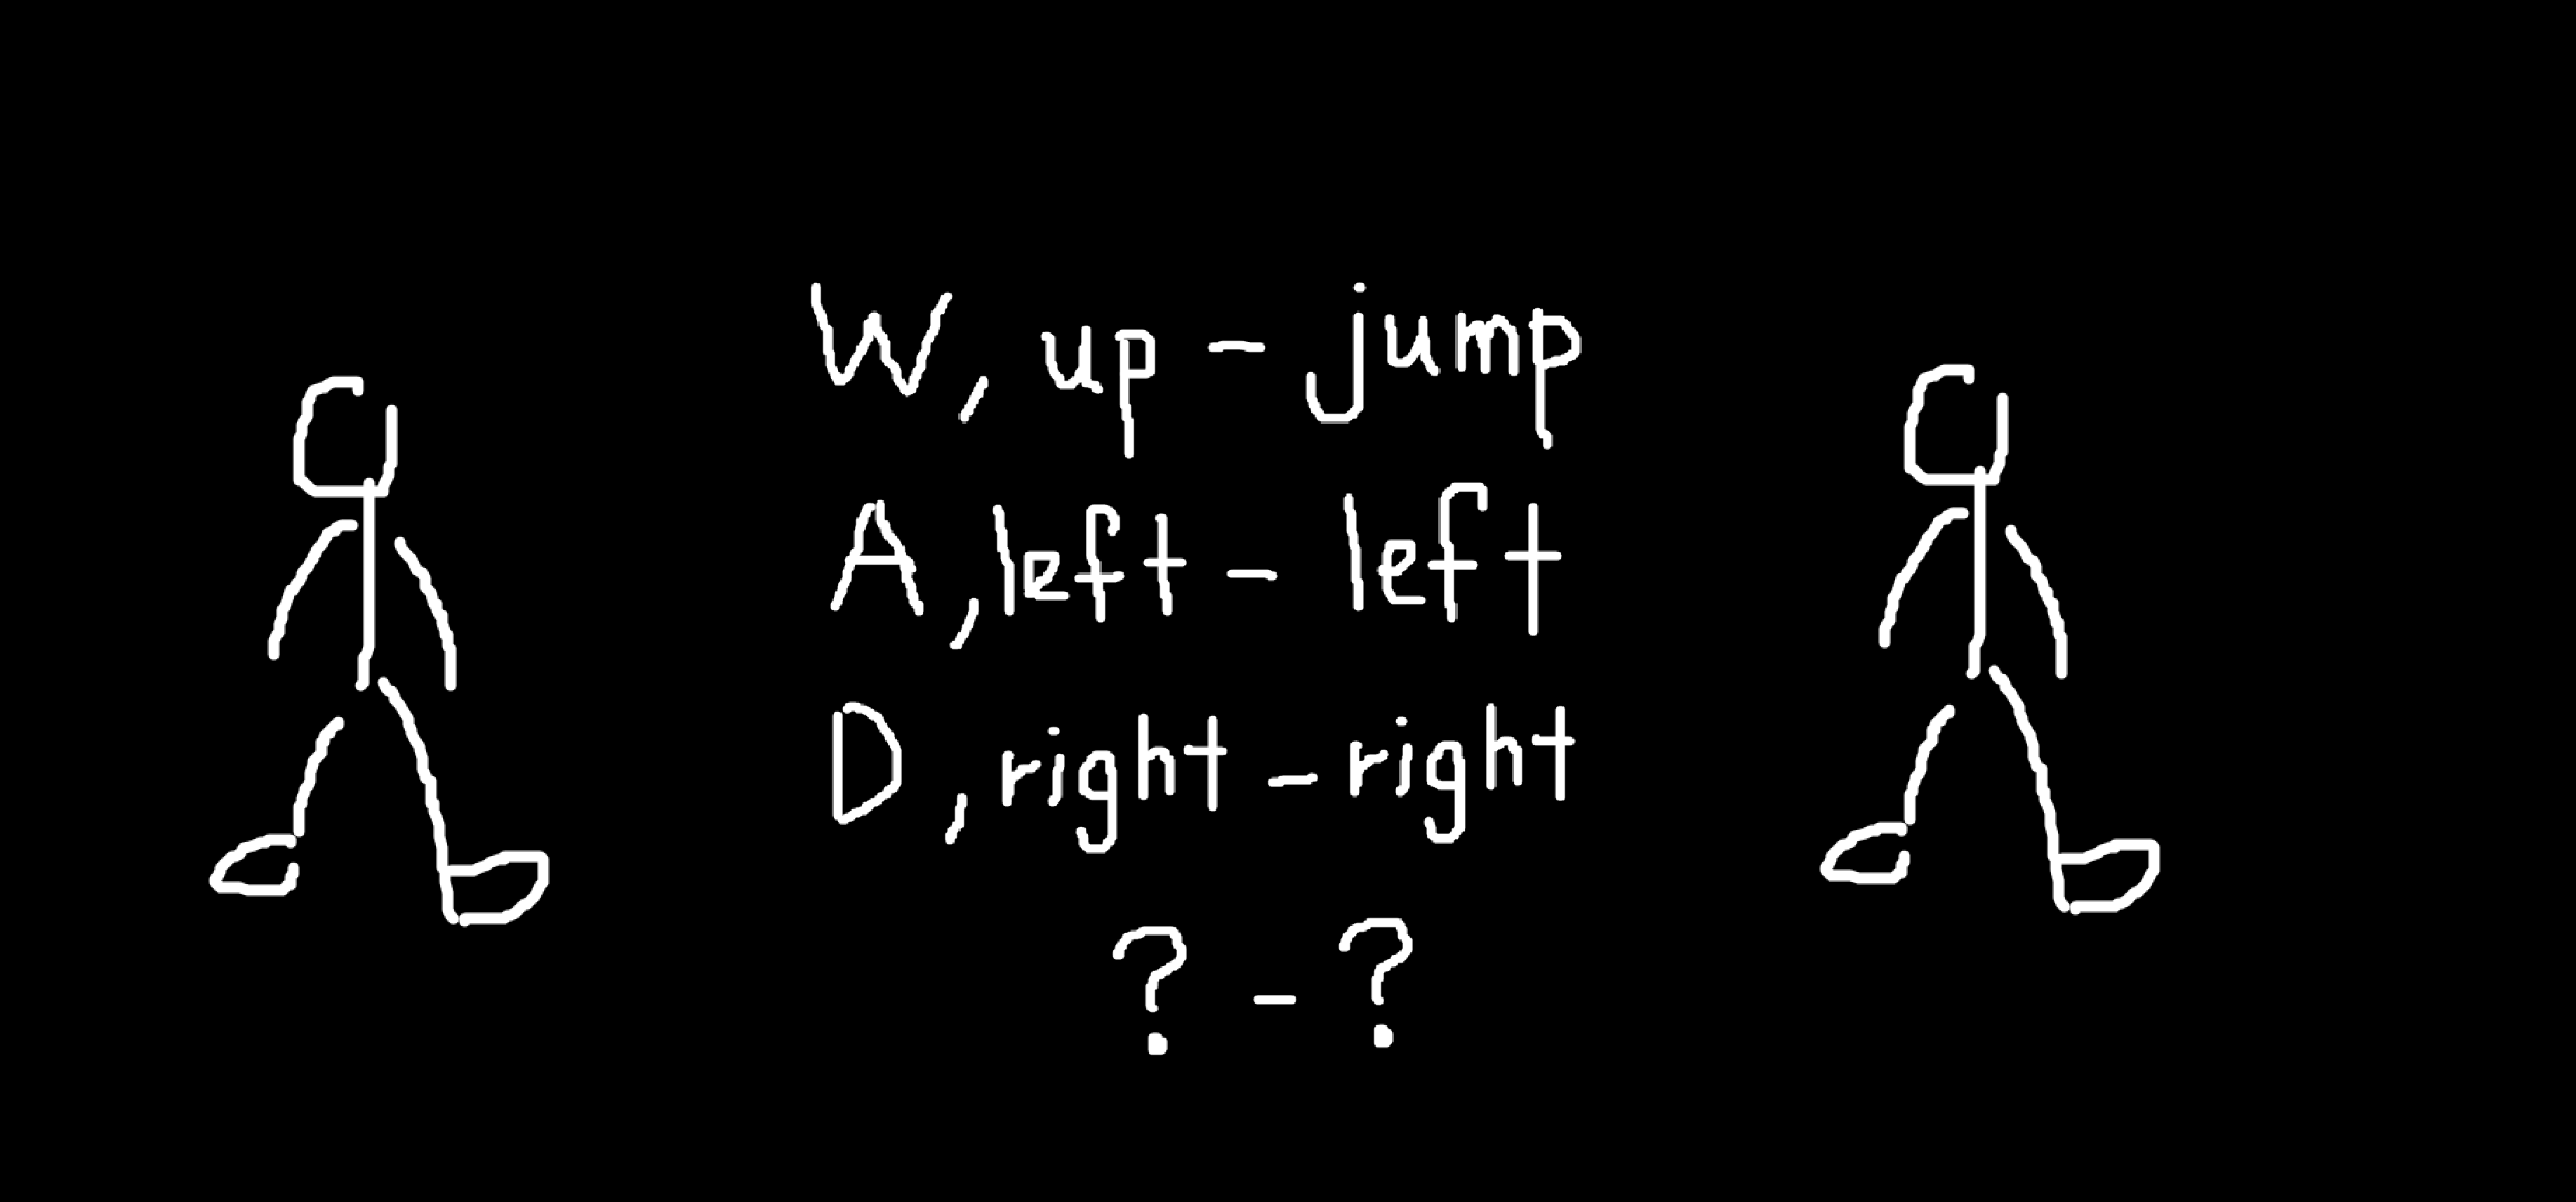 W, up - jump
A, left - left
D, right - right
? - ?